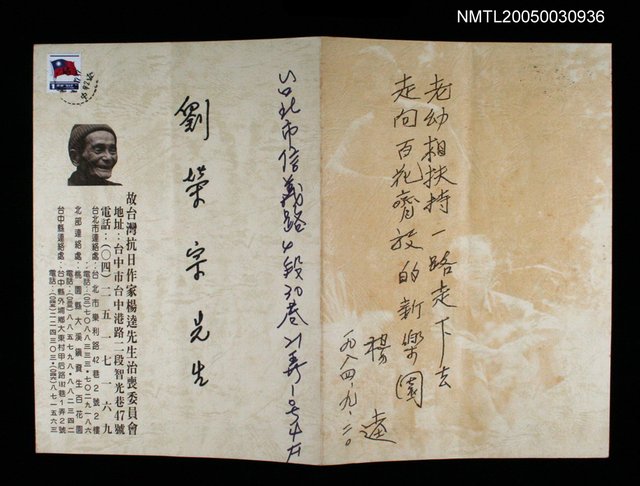 NMTL20050030936
老幼相扶持一路走下去
走向百花齊放的新樂園
楊逵
一九八四.九.二〇
台北市信義路4段30巷21弄
劉榮宗先生
故台灣抗日作家楊逵先生治喪委員會
地址：台中市台中港路二段智光巷47號
電話：(〇四)二五一七一六九
台北市連絡處：台北市樂利路42巷2號2樓
北部連絡處：桃園縣大溪鎮資生百花園
台中縣連絡處：台中縣外埔鄉大東村甲后路巷1弄2號